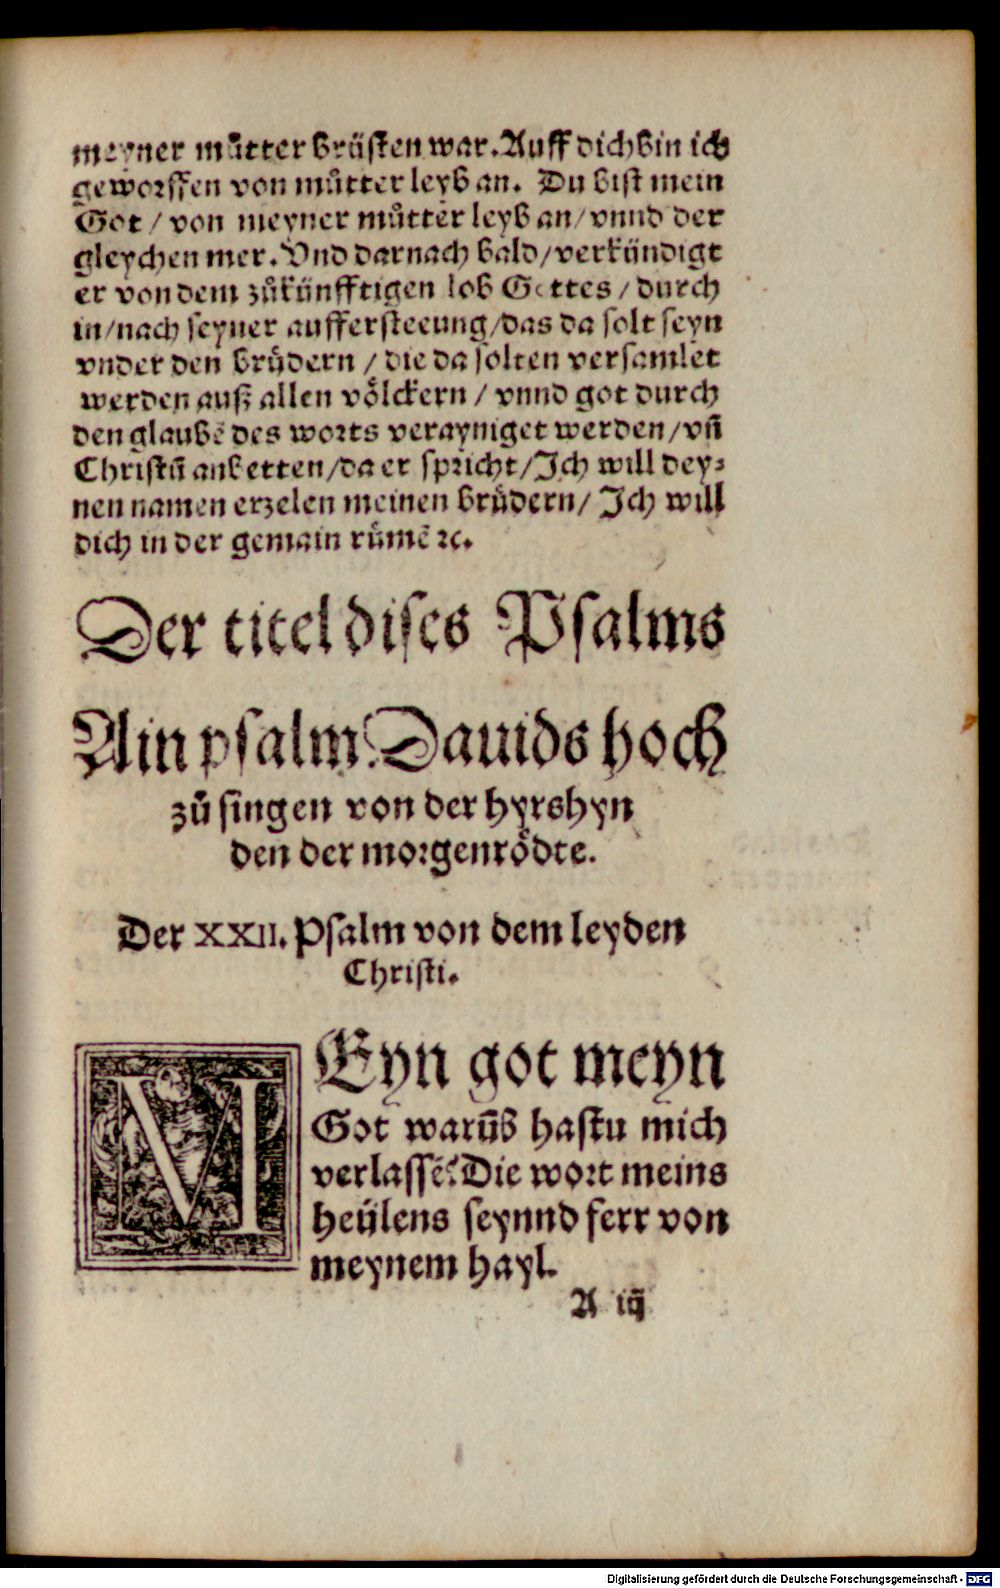 meyner můtter brüsten war. Auff dich bin ich
geworffen von můtter leyb an. Du bist mein
Got / von meyner můtter leyb an / vnnd der
gleychen mer. Vnd darnach bald / verkündigt
er von dem zůkünfftigen lob Gottes / durch
in / nach seyner auffersteeung / das da solt seyn
vnder den brůdern / die da solten versamlet
werden auß allen völckern / vnnd got durch
den glaubē des worts verayniget werden / vn̄
Christū anbetten / da er spricht / Ich will dey⸗
nen namen erzelen meinen brůdern / Ich will
dich in der gemain růmē ꝛc.
Der titel dises Psalms
Ain psalm Dauids hoch
zů singen von der hyrshyn
den der morgenrödte.
Der XXII. Psalm von dem leyden
Christi.
MEyn got meyn
Got warūb hastu mich
verlassē? Die wort meins
heülens seynnd ferr von
meynem hayl.
A iij
Digitalisierung gefördert durch die Deutsche Forschungsgemeinschaft - DFG